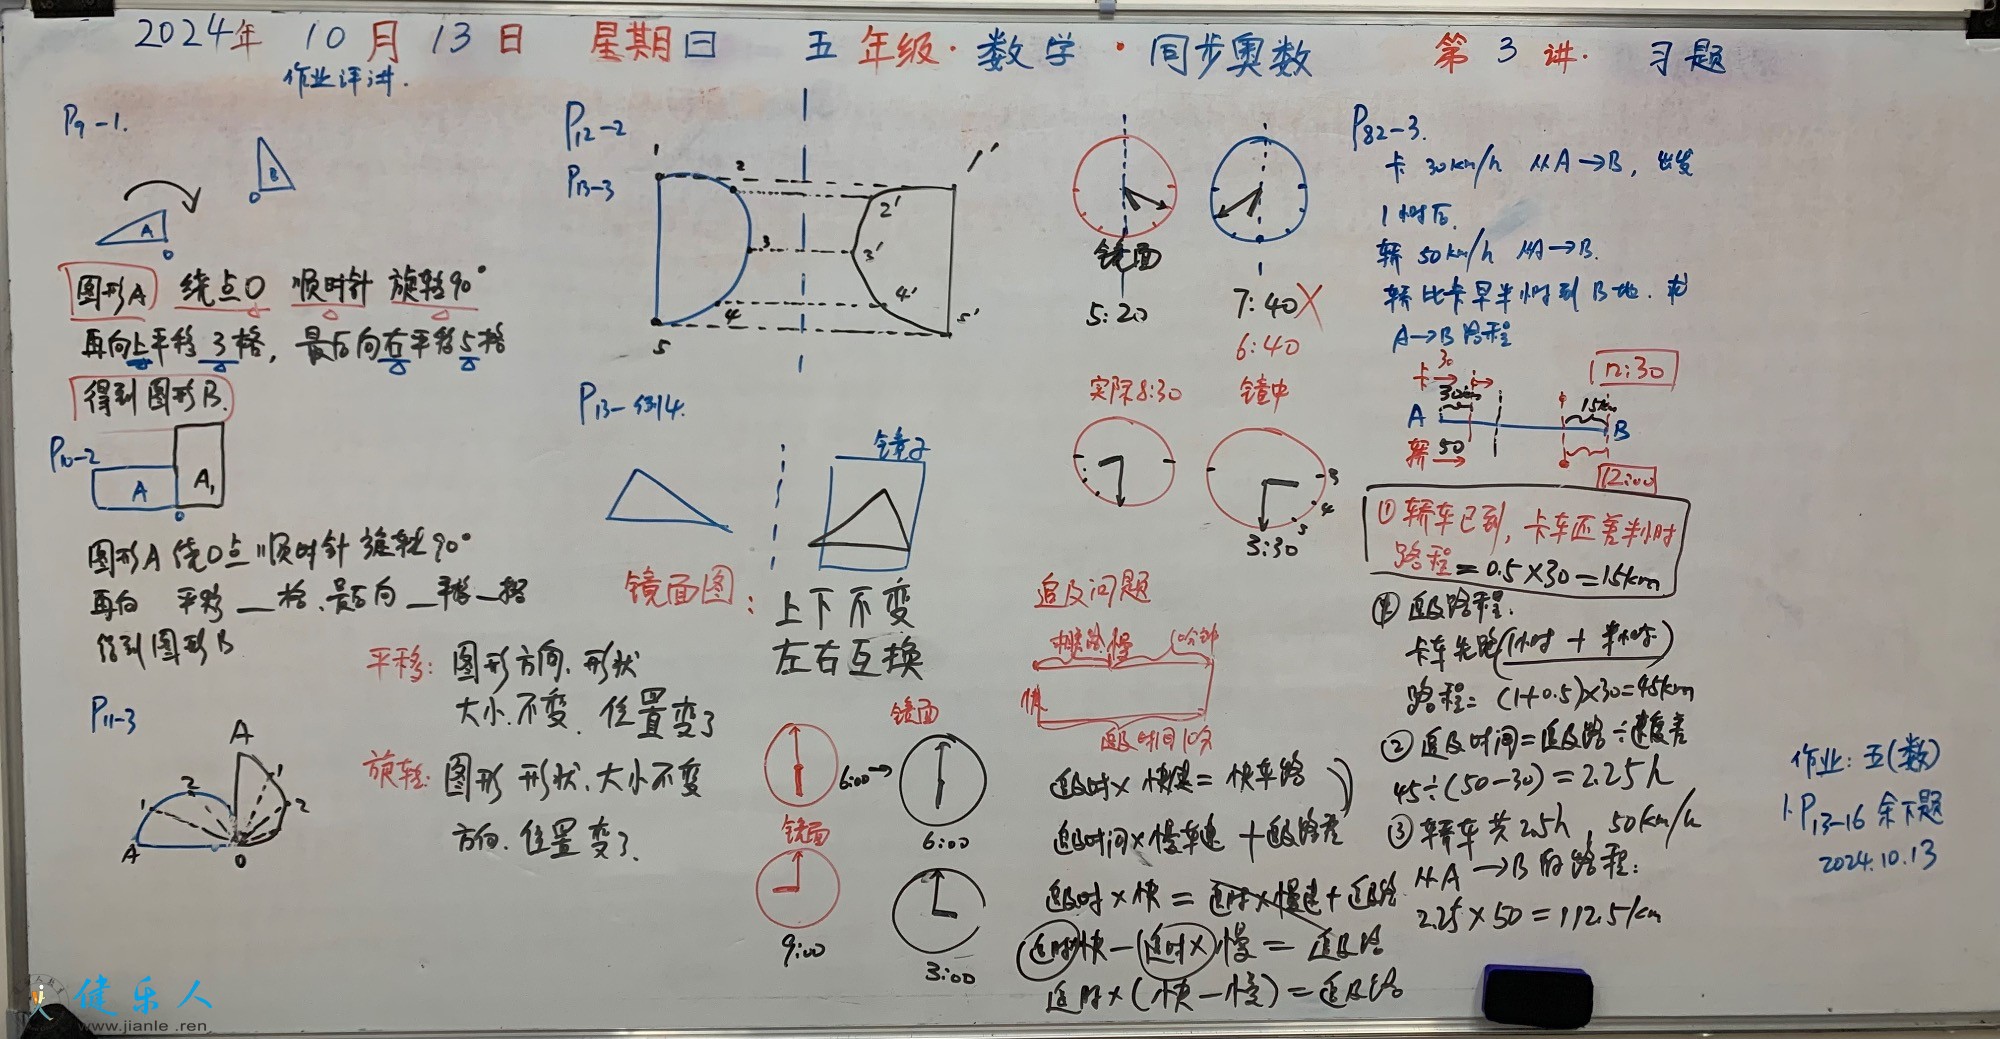 2024年 10月13日 星期日 五年级·数学·同步奥数 第3讲· 习题
作业评讲.
P9-1.
B
O
A
O
图形A 绕点O 顺时针 旋转90°
再向上平移3格，最后向右平移5格
得到图形B.
P10-2
A
A1
O
图形A绕O点顺时针旋转90°
再向 平移__格.最后向__平移__格
得到图形B
P11-3
A
2
1
1
2
A
O
平移: 图形方向.形状
大小.不变. 位置变了
旋转: 图形形状.大小不变
方向.位置变了.
P12-2
P13-3
1
2
3
4
5
1'
2'
3'
4'
5'
P13-例4.
镜子
镜面图:
上下不变
左右互换
镜面
6:00→
6:00
镜面
9:00
3:00
镜面
5:20
7:40X
6:40
实际8:30
镜中
3
4
5
3:30
追及问题
慢
10分钟
快
追及时间10分
追及时×快速=快车路
追及时间×慢车速+追及路差
追及时×快=追及时×慢速+追及路
追时快-追时×慢=追及路
追时×(快-慢)=追及路
P82-3.
卡 30km/h 从A→B, 出发
1小时后.
轿 50km/h 从A→B.
轿比卡早半小时到B地.求
A→B路程
卡 30
12:30
30km
15km
A
B
轿 50
12:00
①轿车已到,卡车还差半小时
路程=0.5×30=15km
①追及路程.
卡车先跑(1小时+半小时)
路程=(1+0.5)×30=45km
②追及时间=追及路÷速度差
45÷(50-30)=2.25h
③轿车共2.5h, 50km/h
从A→B的路程:
2.25×50=112.5km
作业:五(数)
1.P13-16余下题
2024.10.13
健乐人
www.jianle.ren